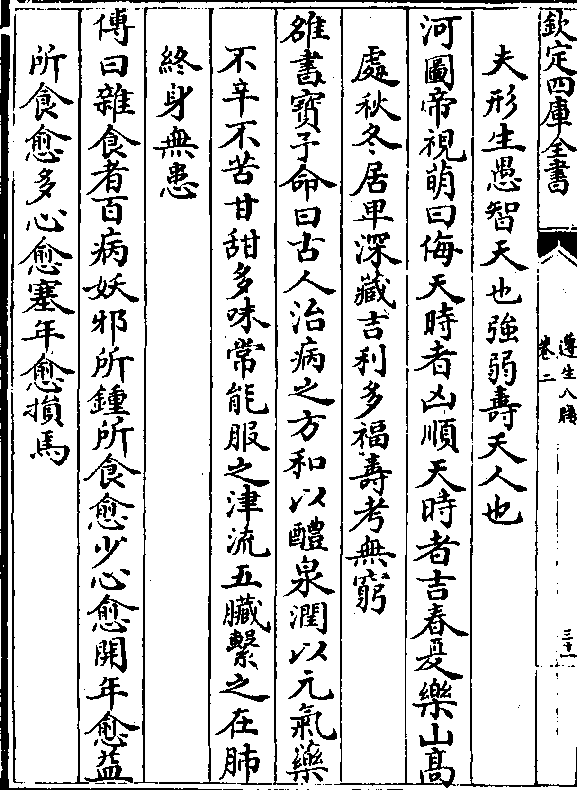 欽定四庫全書
遵生八牋
卷二
三十一
夫形生愚智天也強弱壽夭人也
河圖帝視萌曰侮天時者凶順天時者吉春夏樂山髙
處秋冬居卑深藏吉利多福壽考無窮
雒書寳予命曰古人治病之方和以醴泉潤以元氣藥
不辛不苦甘甜多味常能服之津流五臟繫之在肺
終身無患
傅曰雜食者百病妖邪所鍾所食愈少心愈開年愈益
所食愈多心愈塞年愈損焉